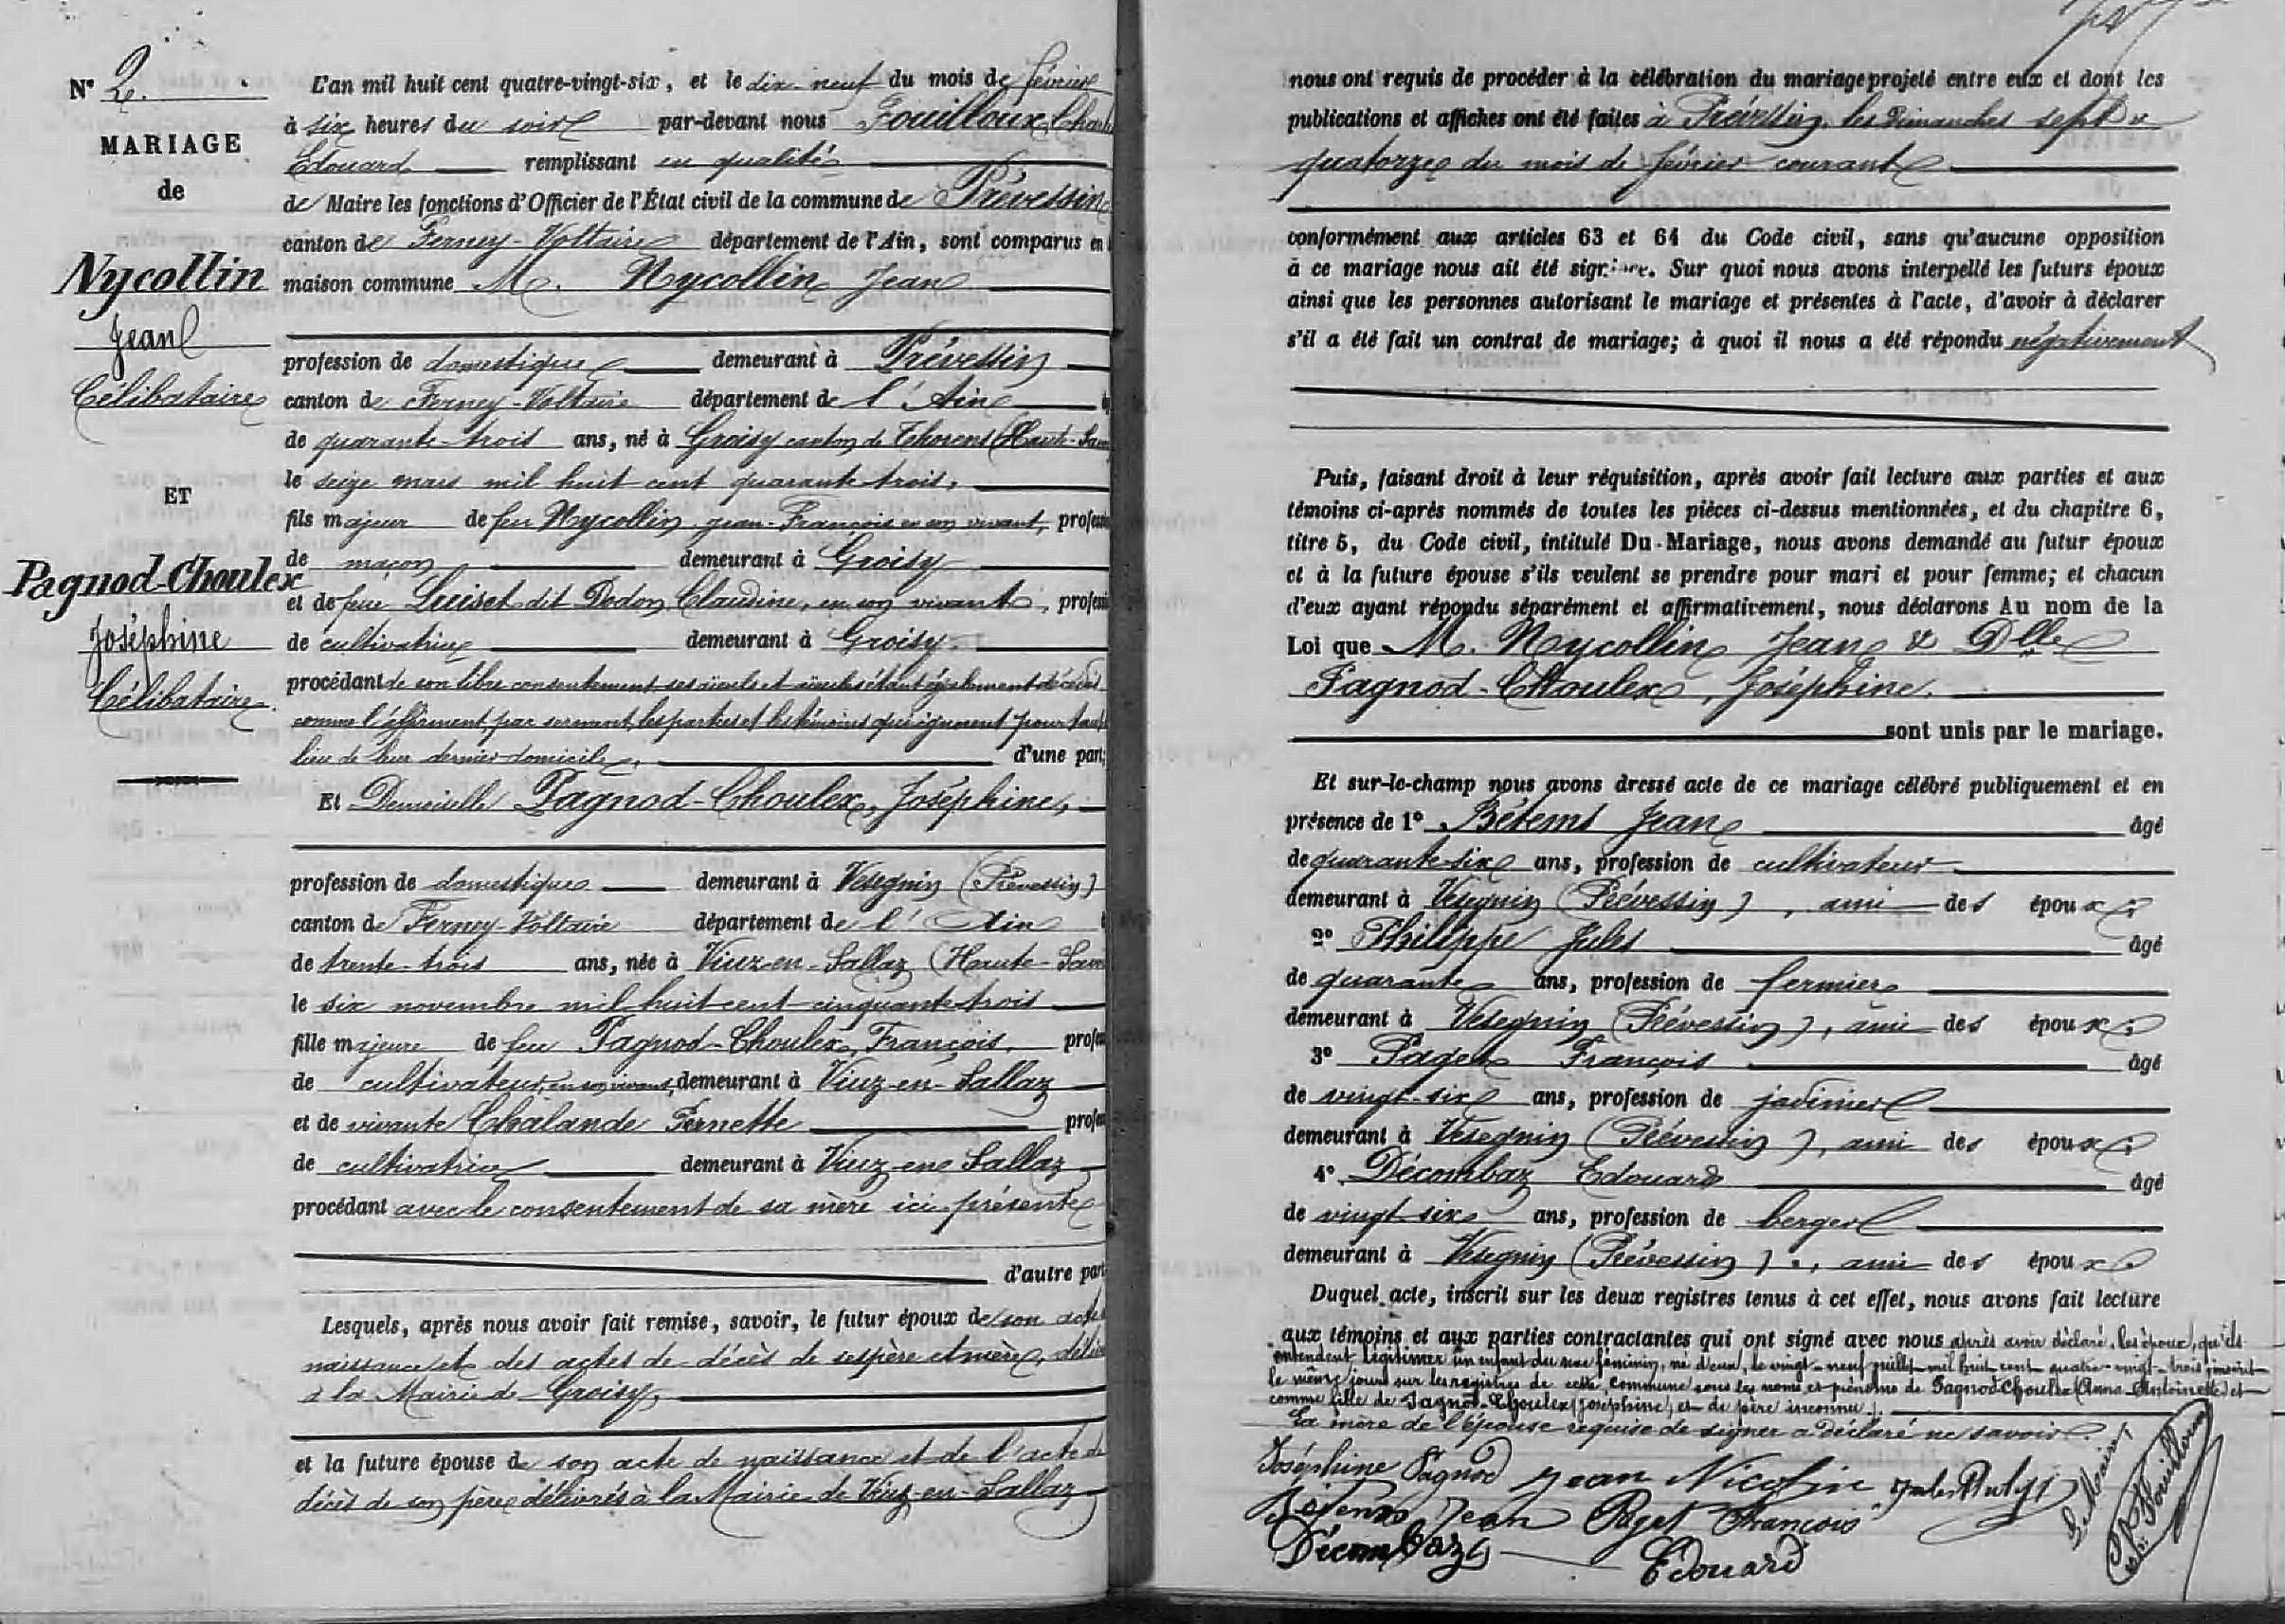 N° 2.
MARIAGE
de
Nycollin
Jean
Célibataire
ET
Pagnod-Choulex
Joséphine
Célibataire
L'an mil huit cent quatre-vingt-six, et le dix-neuf du mois de février
à six heures du soir par-devant nous Fouilloux, Charles
Edouard remplissant en qualité
de Maire les fonctions d'Officier de l'État civil de la commune de Prévessin
canton de Ferney-Voltaire département de l'Ain, sont comparus en
maison commune M. Nycollin Jean
profession de domestique demeurant à Prévessin
canton de Ferney-Voltaire département de l'Ain
de quarante-trois ans, né à Groisy canton de Thorens (Haute-Savoie
le seize mars mil huit cent quarante trois,
fils majeur de feu Nycollin, Jean-François en son vivant, profession
de maçon demeurant à Groisy
et de feue Luiset dit Dodon, Claudine, en son vivant, profession
de cultivatrice demeurant à Groisy.
procédant de son libre consentement, ses aïeuls et aïeules étant également décédés
comme l'affirment, par serment, les parties et les témoins qui ignorent pourtant le
lieu de leur dernier domicile, d'une part;
Et Demoiselle Pagnod-Choulex, Joséphine,
profession de domestique demeurant à Vésegnin (Prévessin)
canton de Ferney-Voltaire département de l'Ain
de trente-trois ans, née à Viuz-en-Sallaz (Haute-Savoie
le six novembre mil huit cent cinquante trois
fille majeure de feu Pagnod-Choulex, François, profession
de cultivateur, en son vivant, demeurant à Viuz-en-Sallaz
et de vivante Chalande Pernette profession
de cultivatrice demeurant à Viuz-en-Sallaz
procédant avec le consentement de sa mère ici présente
d'autre part
Lesquels, après nous avoir fait remise, savoir, le futur époux de son acte
naissance et des actes de décès de ses père et mère, délivrés
à la Mairie de Groisy,
et la future épouse de son acte de naissance et de l'acte de
décès de son père délivrés à la Mairie de Viuz-en-Sallaz
nous ont requis de procéder à la célébration du mariage projeté entre eux et dont les
publications et affiches ont été faites à Prévessin, les Dimanches sept &
quatorze du mois de février courant
conformément aux articles 63 et 64 du Code civil, sans qu'aucune opposition
à ce mariage nous ait été signifiée. Sur quoi nous avons interpellé les futurs époux
ainsi que les personnes autorisant le mariage et présentes à l'acte, d'avoir à déclarer
s'il a été fait un contrat de mariage; à quoi il nous a été répondu négativement
Puis, faisant droit à leur réquisition, après avoir fait lecture aux parties et aux
témoins ci-après nommés de toutes les pièces ci-dessus mentionnées, et du chapitre 6,
titre 5, du Code civil, intitulé Du Mariage, nous avons demandé au futur époux
et à la future épouse s'ils veulent se prendre pour mari et pour femme; et chacun
d'eux ayant répondu séparément et affirmativement, nous déclarons Au nom de la
Loi que M. Nycollin Jean & Dlle
Pagnod-Choulex, Joséphine.
sont unis par le mariage.
Et sur-le-champ nous avons dressé acte de ce mariage célébré publiquement et en
présence de 1° Bétems Jean âgé
de quarante-six ans, profession de cultivateur
demeurant à Vésegnin (Prévessin), ami des époux;
2° Philippe Jules âgé
de quarante ans, profession de fermier
demeurant à Vésegnin (Prévessin), ami des époux;
3° Paget François âgé
de vingt-six ans, profession de jardinier
demeurant à Vésegnin (Prévessin), ami des époux;
4° Décombaz Edouard âgé
de vingt six ans, profession de berger
demeurant à Vésegnin (Prévessin), ami des époux
Duquel acte, inscrit sur les deux registres tenus à cet effet, nous avons fait lecture
aux témoins et aux parties contractantes qui ont signé avec nous après avoir déclaré, les époux, qu'ils
entendent légitimer un enfant du sexe féminin, né d'eux, le vingt-neuf juillet mil huit cent quatre-vingt-trois, inscrit
le même jour sur les registres de cette commune sous les noms et prénoms de Pagnod-Choulex (Anna Antoinette) et
comme fille de Pagnod-Choulex (Joséphine) et de père inconnu.
La mère de l'épouse requise de signer a déclaré ne savoir.
Joséphine Pagnod Jean Nicolin
Bétems Jean Paget François
Décombaz Edouard
Le Maire,
Fouilloux